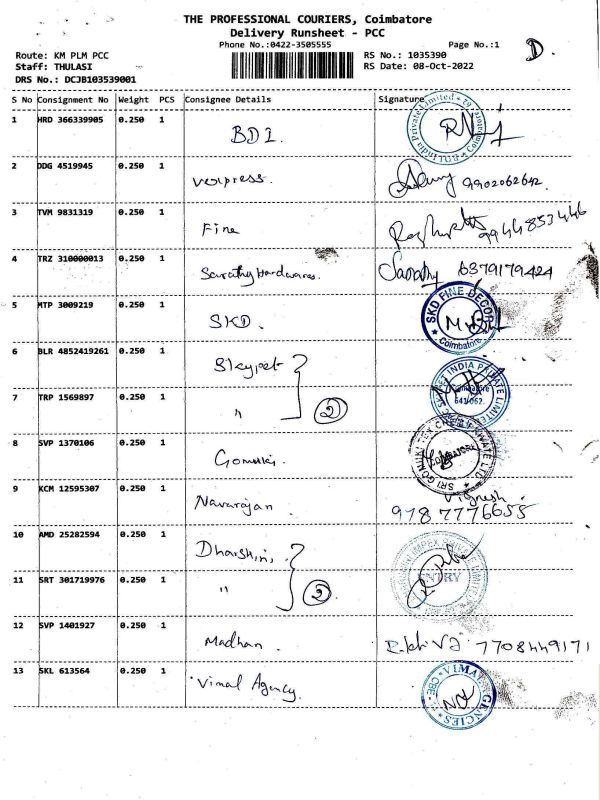 THE PROFESSIONAL COURIERS, Coimbatore
Delivery Runsheet - PCC
Phone No.:0422-3505555 Page No.:1 D.
Route: KM PLM PCC RS No.: 1035390
Staff: THULASI RS Date: 08-Oct-2022
DRS No.: DCJB103539001
S No Consignment No Weight PCS Consignee Details Signature
1 HRD 366339905 0.250 1 BDI.
2 DDG 4519945 0.250 1 verpress. 9902062642.
3 TVM 9831319 0.250 1 Fine 9944853446
4 TRZ 310000013 0.250 1 Sarathy Hardwares. Sarathy 6379179424
5 MTP 3009219 0.250 1 SKD. SKD FINE DECOR Coimbatore
6 BLR 4852419261 0.250 1 INDIA PRIVATE LIMITED
7 TRP 1569897 0.250 1 " 2 641 062.
8 SVP 1370106 0.250 1 SRI GOMUKI PRIVATE LTD
9 KCM 12595307 0.250 1 Navarajan Vignesh 9787776655
10 AMD 25282594 0.250 1 Dharshini IMPEX PRIVATE LIMITED
11 SRT 301719976 0.250 1 " 2 ENTRY
12 SVP 1401927 0.250 1 Madhan. 7708449171
13 SKL 613564 0.250 1 Vimal Agency. VIMAL AGENCIES CBE